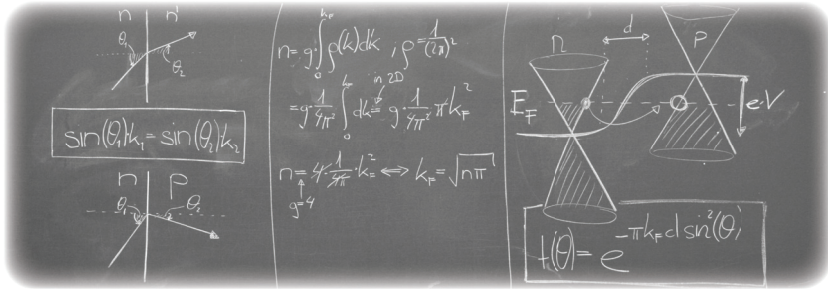 n n'
θ₁ θ₂
sin(θ₁)k₁ = sin(θ₂)k₂
n p
θ₁ θ₂
n = g·∫₀^{k_F} ρ(k)dk ; ρ = 1/(2π)²
in 2D
= g·1/4π² ∫₀^{k_F} dk = g·1/4π²·πk_F²
n = 4·1/4π·k_F² ⟺ k_F = √nπ
g=4
n d p
E_F e·V
t(θ) = e^{-πk_F d sin²(θ)}